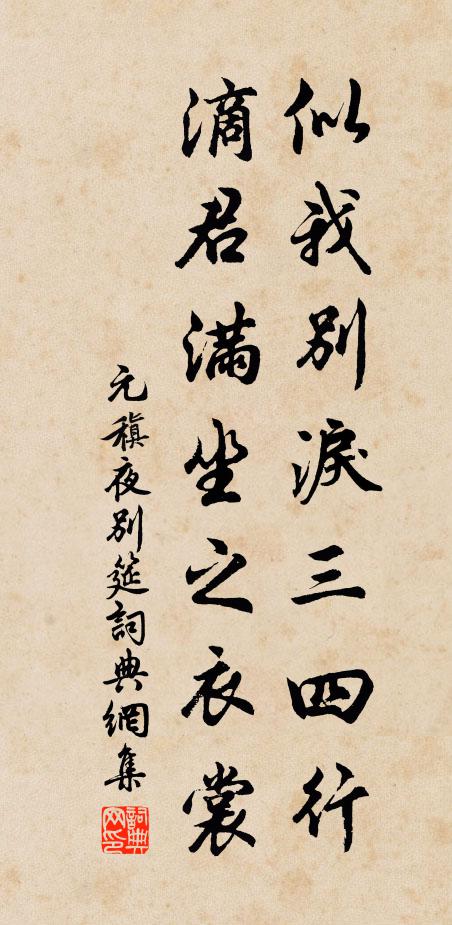 似我別淚三四行
滴君滿坐之衣裳
元稹夜別筵詞典網集
詞典网印